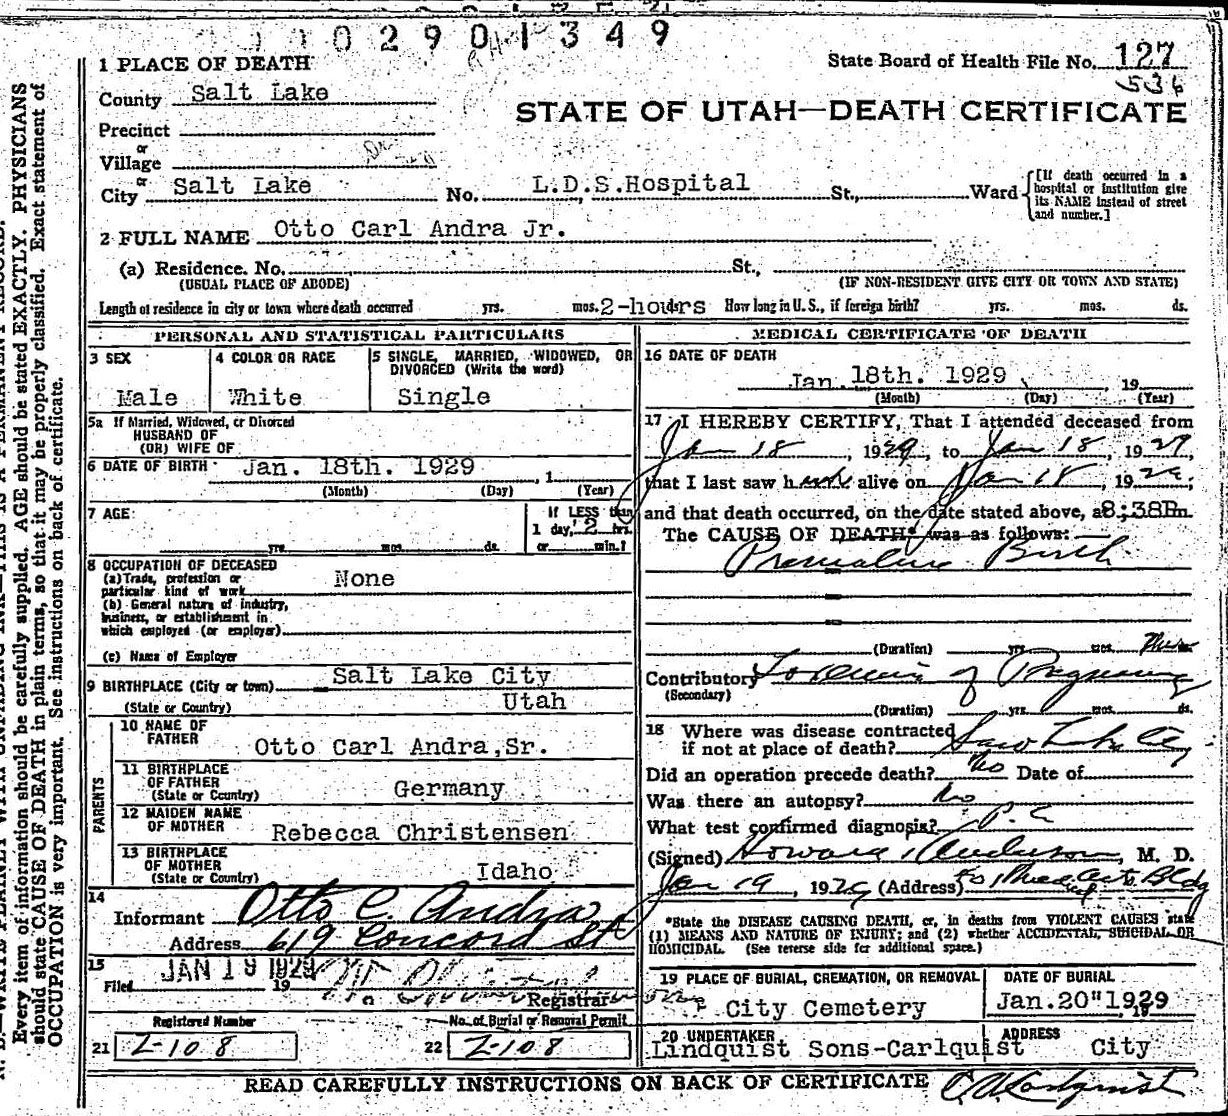 0 2 9 0 1 3 4 9
1 PLACE OF DEATH
State Board of Health File No. 127
536
County Salt Lake
STATE OF UTAH—DEATH CERTIFICATE
Precinct
or
Village
or
City Salt Lake No. L.D.S.Hospital St., Ward
[If death occurred in a hospital or institution give its NAME instead of street and number.]
2 FULL NAME Otto Carl Andra Jr.
(a) Residence. No. St.,
(USUAL PLACE OF ABODE) (IF NON-RESIDENT GIVE CITY OR TOWN AND STATE)
Length of residence in city or town where death occurred yrs. mos. 2-hours ds. How long in U.S., if foreign birth? yrs. mos. ds.
PERSONAL AND STATISTICAL PARTICULARS
3 SEX
Male
4 COLOR OR RACE
White
5 SINGLE, MARRIED, WIDOWED, OR DIVORCED (Write the word)
Single
5a If Married, Widowed, or Divorced
HUSBAND OF
(OR) WIFE OF
6 DATE OF BIRTH Jan. 18th. 1929, 1
(Month) (Day) (Year)
7 AGE
yrs. mos. ds.
If LESS than
1 day, 2 hrs.
or min.?
8 OCCUPATION OF DECEASED
(a) Trade, profession or
particular kind of work None
(b) General nature of industry,
business, or establishment in
which employed (or employer)
(c) Name of Employer
9 BIRTHPLACE (City or town) Salt Lake City
(State or Country) Utah
PARENTS
10 NAME OF
FATHER Otto Carl Andra,Sr.
11 BIRTHPLACE
OF FATHER
(State or Country) Germany
12 MAIDEN NAME
OF MOTHER Rebecca Christensen
13 BIRTHPLACE
OF MOTHER
(State or Country) Idaho
14
Informant Otto C. Andra
Address 619 Concord St
15
Filed JAN 19 1929 19
Registrar
Registered Number
21 2-108
No. of Burial or Removal Permit
22 2-108
MEDICAL CERTIFICATE OF DEATH
16 DATE OF DEATH
Jan. 18th. 1929, 19
(Month) (Day) (Year)
17 I HEREBY CERTIFY, That I attended deceased from
Jan 18, 1929, to Jan 18, 1929,
that I last saw h alive on Jan 18, 1929;
and that death occurred, on the date stated above, a8:38Pm.
The CAUSE OF DEATH* was as follows:
Premature Birth
(Duration) yrs. mos.
Contributory Toxemia of Pregnancy
(Secondary)
(Duration) yrs. mos. ds.
18 Where was disease contracted
if not at place of death? Salt Lake City
Did an operation precede death? No Date of
Was there an autopsy? No
What test confirmed diagnosis? P.E.
(Signed) Howard Anderson, M. D.
Jan 19, 1929 (Address) Bldg
*State the DISEASE CAUSING DEATH, or, in deaths from VIOLENT CAUSES state
(1) MEANS AND NATURE OF INJURY; and (2) whether ACCIDENTAL, SUICIDAL OR
HOMICIDAL. (See reverse side for additional space.)
19 PLACE OF BURIAL, CREMATION, OR REMOVAL
City Cemetery
DATE OF BURIAL
Jan.20" 1929
, 19
20 UNDERTAKER
Lindquist Sons-Carlquist
ADDRESS
City
READ CAREFULLY INSTRUCTIONS ON BACK OF CERTIFICATE C A Carlquist
N. B.—WRITE PLAINLY WITH UNFADING INK—THIS IS A PERMANENT RECORD.
Every item of information should be carefully supplied. AGE should be stated EXACTLY. PHYSICIANS
should state CAUSE OF DEATH in plain terms, so that it may be properly classified. Exact statement of
OCCUPATION is very important. See instructions on back of certificate.